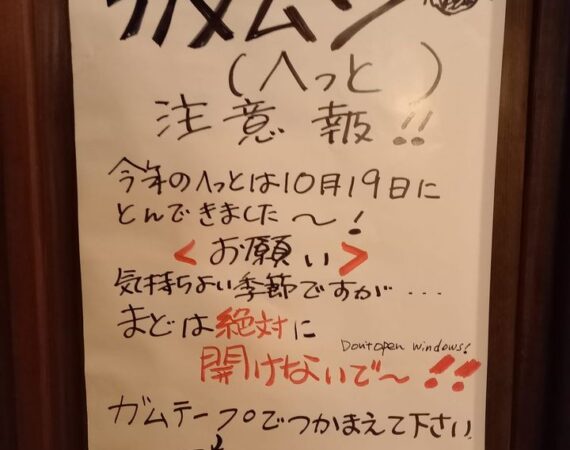 カメムシ
(へっと )
注意報!!
今年のへっとは10月19日に
とんできました〜!
<お願い>
気持ちよい季節ですが...
まどは絶対に
Don't open windows!
開けないで〜!!
ガムテープでつかまえて下さい